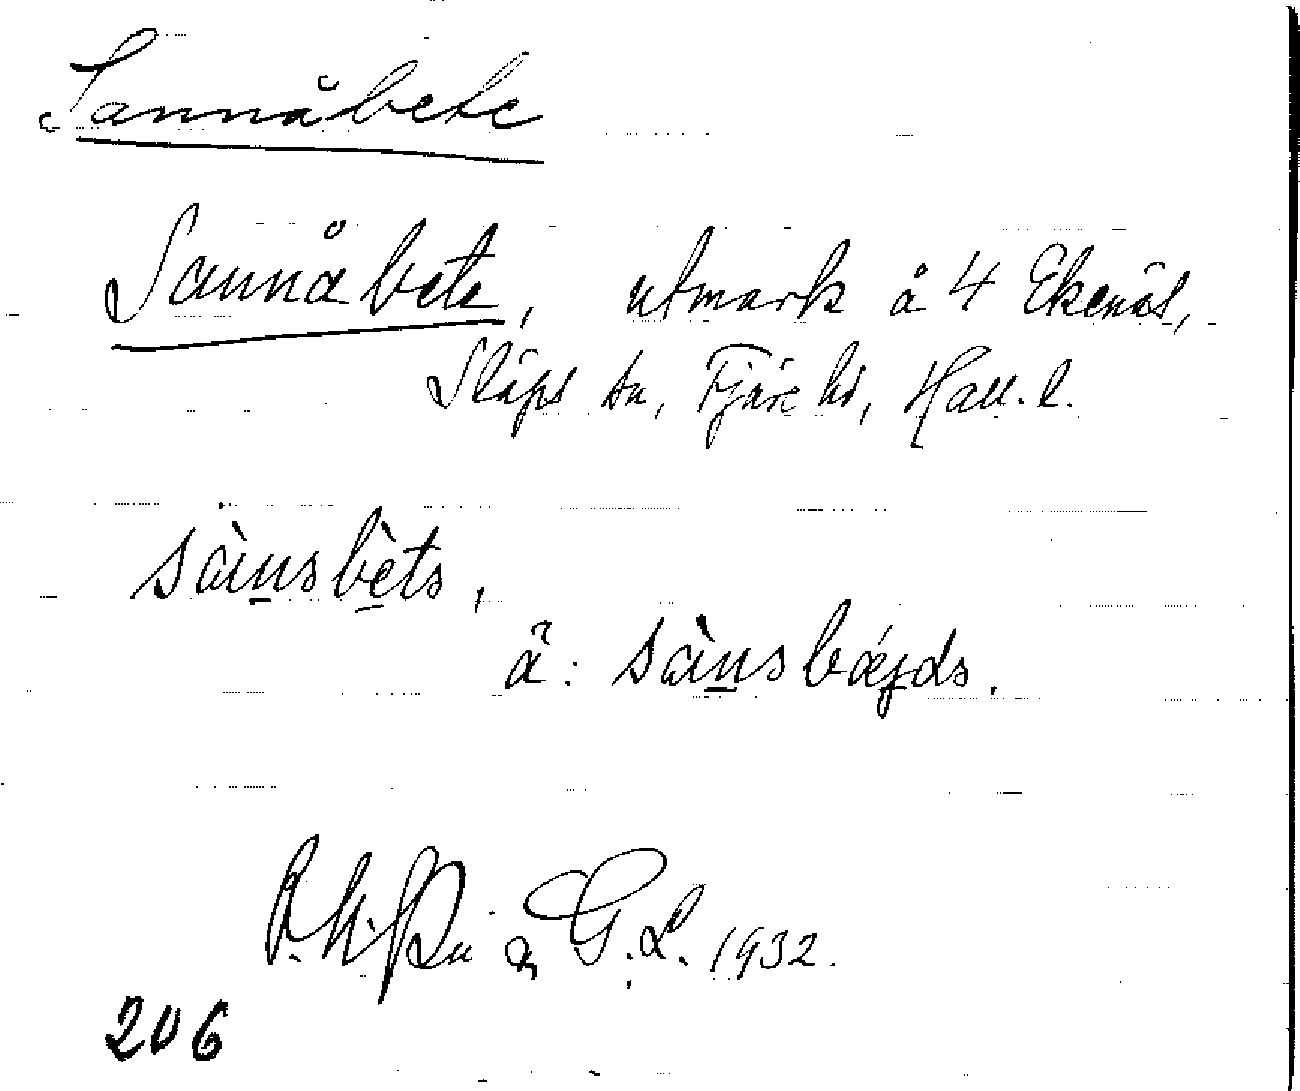 Sannåbete
Sannåbete, utmark å 4 Ekenäs,
Släps sn, Fjäre hd, Hall. l.
sànsbèts,
ä: sànsbǽjds.
& G.L. 1932.
206